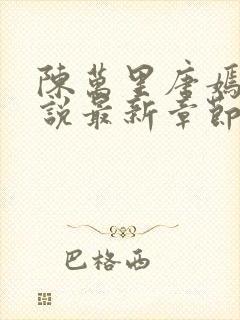 陳萬里唐嫣
說最新章節
巴格西